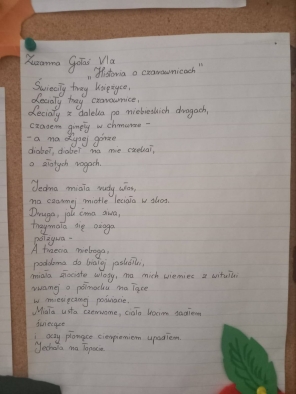 Zuzanna Gołaś VIa
"Historia o czarownicach"
Świeciły trzy księżyce,
Leciały trzy czarownice,
Leciały z daleka po niebieskich drogach,
czasem ginęły w chmurze -
- a na Łysej górze
diabeł, diabeł na nie czekał,
o złotych rogach.
Jedna miała rudy włos,
na czarnej miotle leciała w skos.
Druga, jak ćma siwa,
trzymała się ogoga
pół
A trzecia nieboga,
podobna do białej jaskółki,
miała złociste włosy, na nich wieniec z witułki
rwanej o północku na łące
w miesięcznej poświacie.
Miała usta czerwone, ciało kocim sadłem
świecące
i oczy płonące cierpieniem upadłem.
Jechała na łopacie.